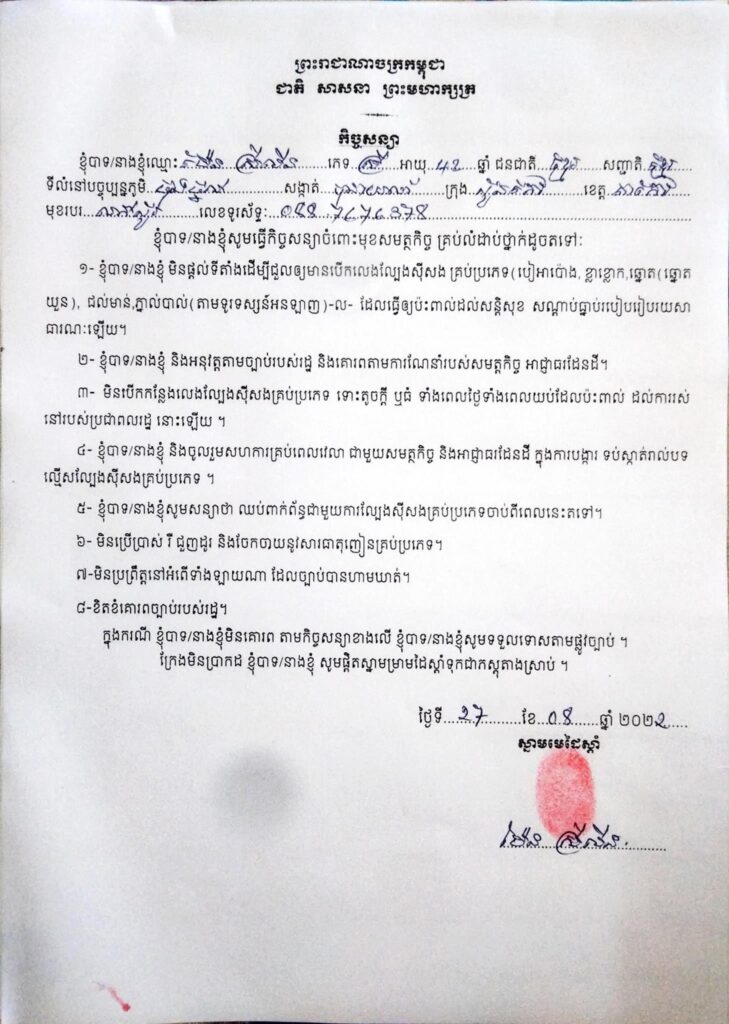 ព្រះរាជាណាចក្រកម្ពុជា
ជាតិ សាសនា ព្រះមហាក្សត្រ
កិច្ចសន្យា
ខ្ញុំបាទ/នាងខ្ញុំឈ្មោះ ភេទ ស្រី អាយុ 42 ឆ្នាំ ជនជាតិ ខ្មែរ សញ្ជាតិ ខ្មែរ
ទីលំនៅបច្ចុប្បន្នភូមិ សង្កាត់ ក្រុង ខេត្ត
មុខរបរ លេខទូរស័ទ្ទៈ 088 7676378
ខ្ញុំបាទ/នាងខ្ញុំសូមធ្វើកិច្ចសន្យាចំពោះមុខសមត្ថកិច្ច គ្រប់លំដាប់ថ្នាក់ដូចតទៅៈ
១- ខ្ញុំបាទ/នាងខ្ញុំ មិនផ្តល់ទីតាំងដើម្បីជួលឲ្យមានបើកលេងល្បែងស៊ីសង គ្រប់ប្រភេទ(បៀអាប៉ោង, ខ្លាឃ្លោក,ឆ្នោត(ឆ្នោត
យួន), ជល់មាន់,ភ្នាល់បាល់(តាមទូរទស្សន៍អនឡាញ)-ល- ដែលធ្វើឲ្យប៉ះពាល់ដល់សន្តិសុខ សណ្តាប់ធ្នាប់របៀបរៀបរយសា
ធារណៈឡើយ។
២- ខ្ញុំបាទ/នាងខ្ញុំ និងអនុវត្តតាមច្បាប់របស់រដ្ឋ និងគោរពតាមការណែនាំរបស់សមត្ថកិច្ច អាជ្ញាធរដែនដី។
៣- មិនបើកកន្លែងលេងល្បែងស៊ីសងគ្រប់ប្រភេទ ទោះតូចក្តី ឬធំ ទាំងពេលថ្ងៃទាំងពេលយប់ដែលប៉ះពាល់ ដល់ការរស់
នៅរបស់ប្រជាពលរដ្ឋ នោះឡើយ ។
៤- ខ្ញុំបាទ/នាងខ្ញុំ និងចូលរួមសហការគ្រប់ពេលវេលា ជាមួយសមត្ថកិច្ច និងអាជ្ញាធរដែនដី ក្នុងការបង្ការ ទប់ស្កាត់រាល់បទ
ល្មើសល្បែងស៊ីសងគ្រប់ប្រភេទ ។
៥- ខ្ញុំបាទ/នាងខ្ញុំសូមសន្យាថា ឈប់ពាក់ព័ន្ធជាមួយការល្បែងស៊ីសងគ្រប់ប្រភេទចាប់ពីពេលនេះតទៅ។
៦- មិនប្រើប្រាស់ រឺ ជួញដូរ និងចែកចាយនូវសារធាតុញៀនគ្រប់ប្រភេទ។
៧-មិនប្រព្រឹត្តនៅអំពើទាំងឡាយណា ដែលច្បាប់បានហាមឃាត់។
៨-ខិតខំគោរពច្បាប់របស់រដ្ឋ។
ក្នុងករណី ខ្ញុំបាទ/នាងខ្ញុំមិនគោរព តាមកិច្ចសន្យាខាងលើ ខ្ញុំបាទ/នាងខ្ញុំសូមទទួលទោសតាមផ្លូវច្បាប់ ។
ក្រែងមិនប្រាកដ ខ្ញុំបាទ/នាងខ្ញុំ សូមផ្តិតស្នាមម្រាមដៃស្តាំទុកជាភស្តុតាងស្រាប់ ។
ថ្ងៃទី 27 ខែ 08 ឆ្នាំ ២០២2
ស្នាមមេដៃស្តាំ